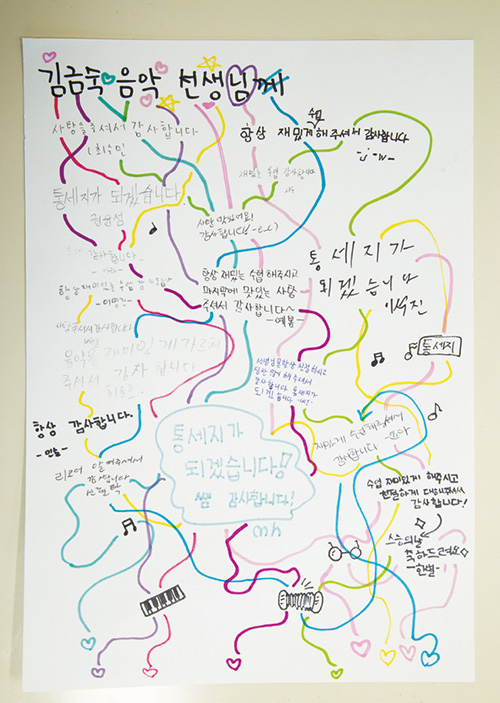 김금숙 음악 선생님께
사탕을 주셔서 감사합니다
최수민
통세지가 되겠습니다.
항상 재밌게 수업 해주셔서 감사합니다
재밌는 수업 감사합니다
사탕 맛있어요!
감사합니다!
감사합니다
항상 재밌는 수업 해주시고
마지막에 맛있는 사탕
주셔서 감사합니다~
-예봄-
통세지가
되겠습니다
이석진
음악을 재미있게 가르쳐
주셔서 감사합니다
통세지
항상 감사합니다.
통세지가
되겠습니다!
쌤 감사합니다!
재미있게 수업 해주셔서
감사합니다
리코더 알려주셔서
감사합니다
수업 재미있게 해주시고
친절하게 대해주셔서
감사합니다!
스승의날
축하드려요
-한별-